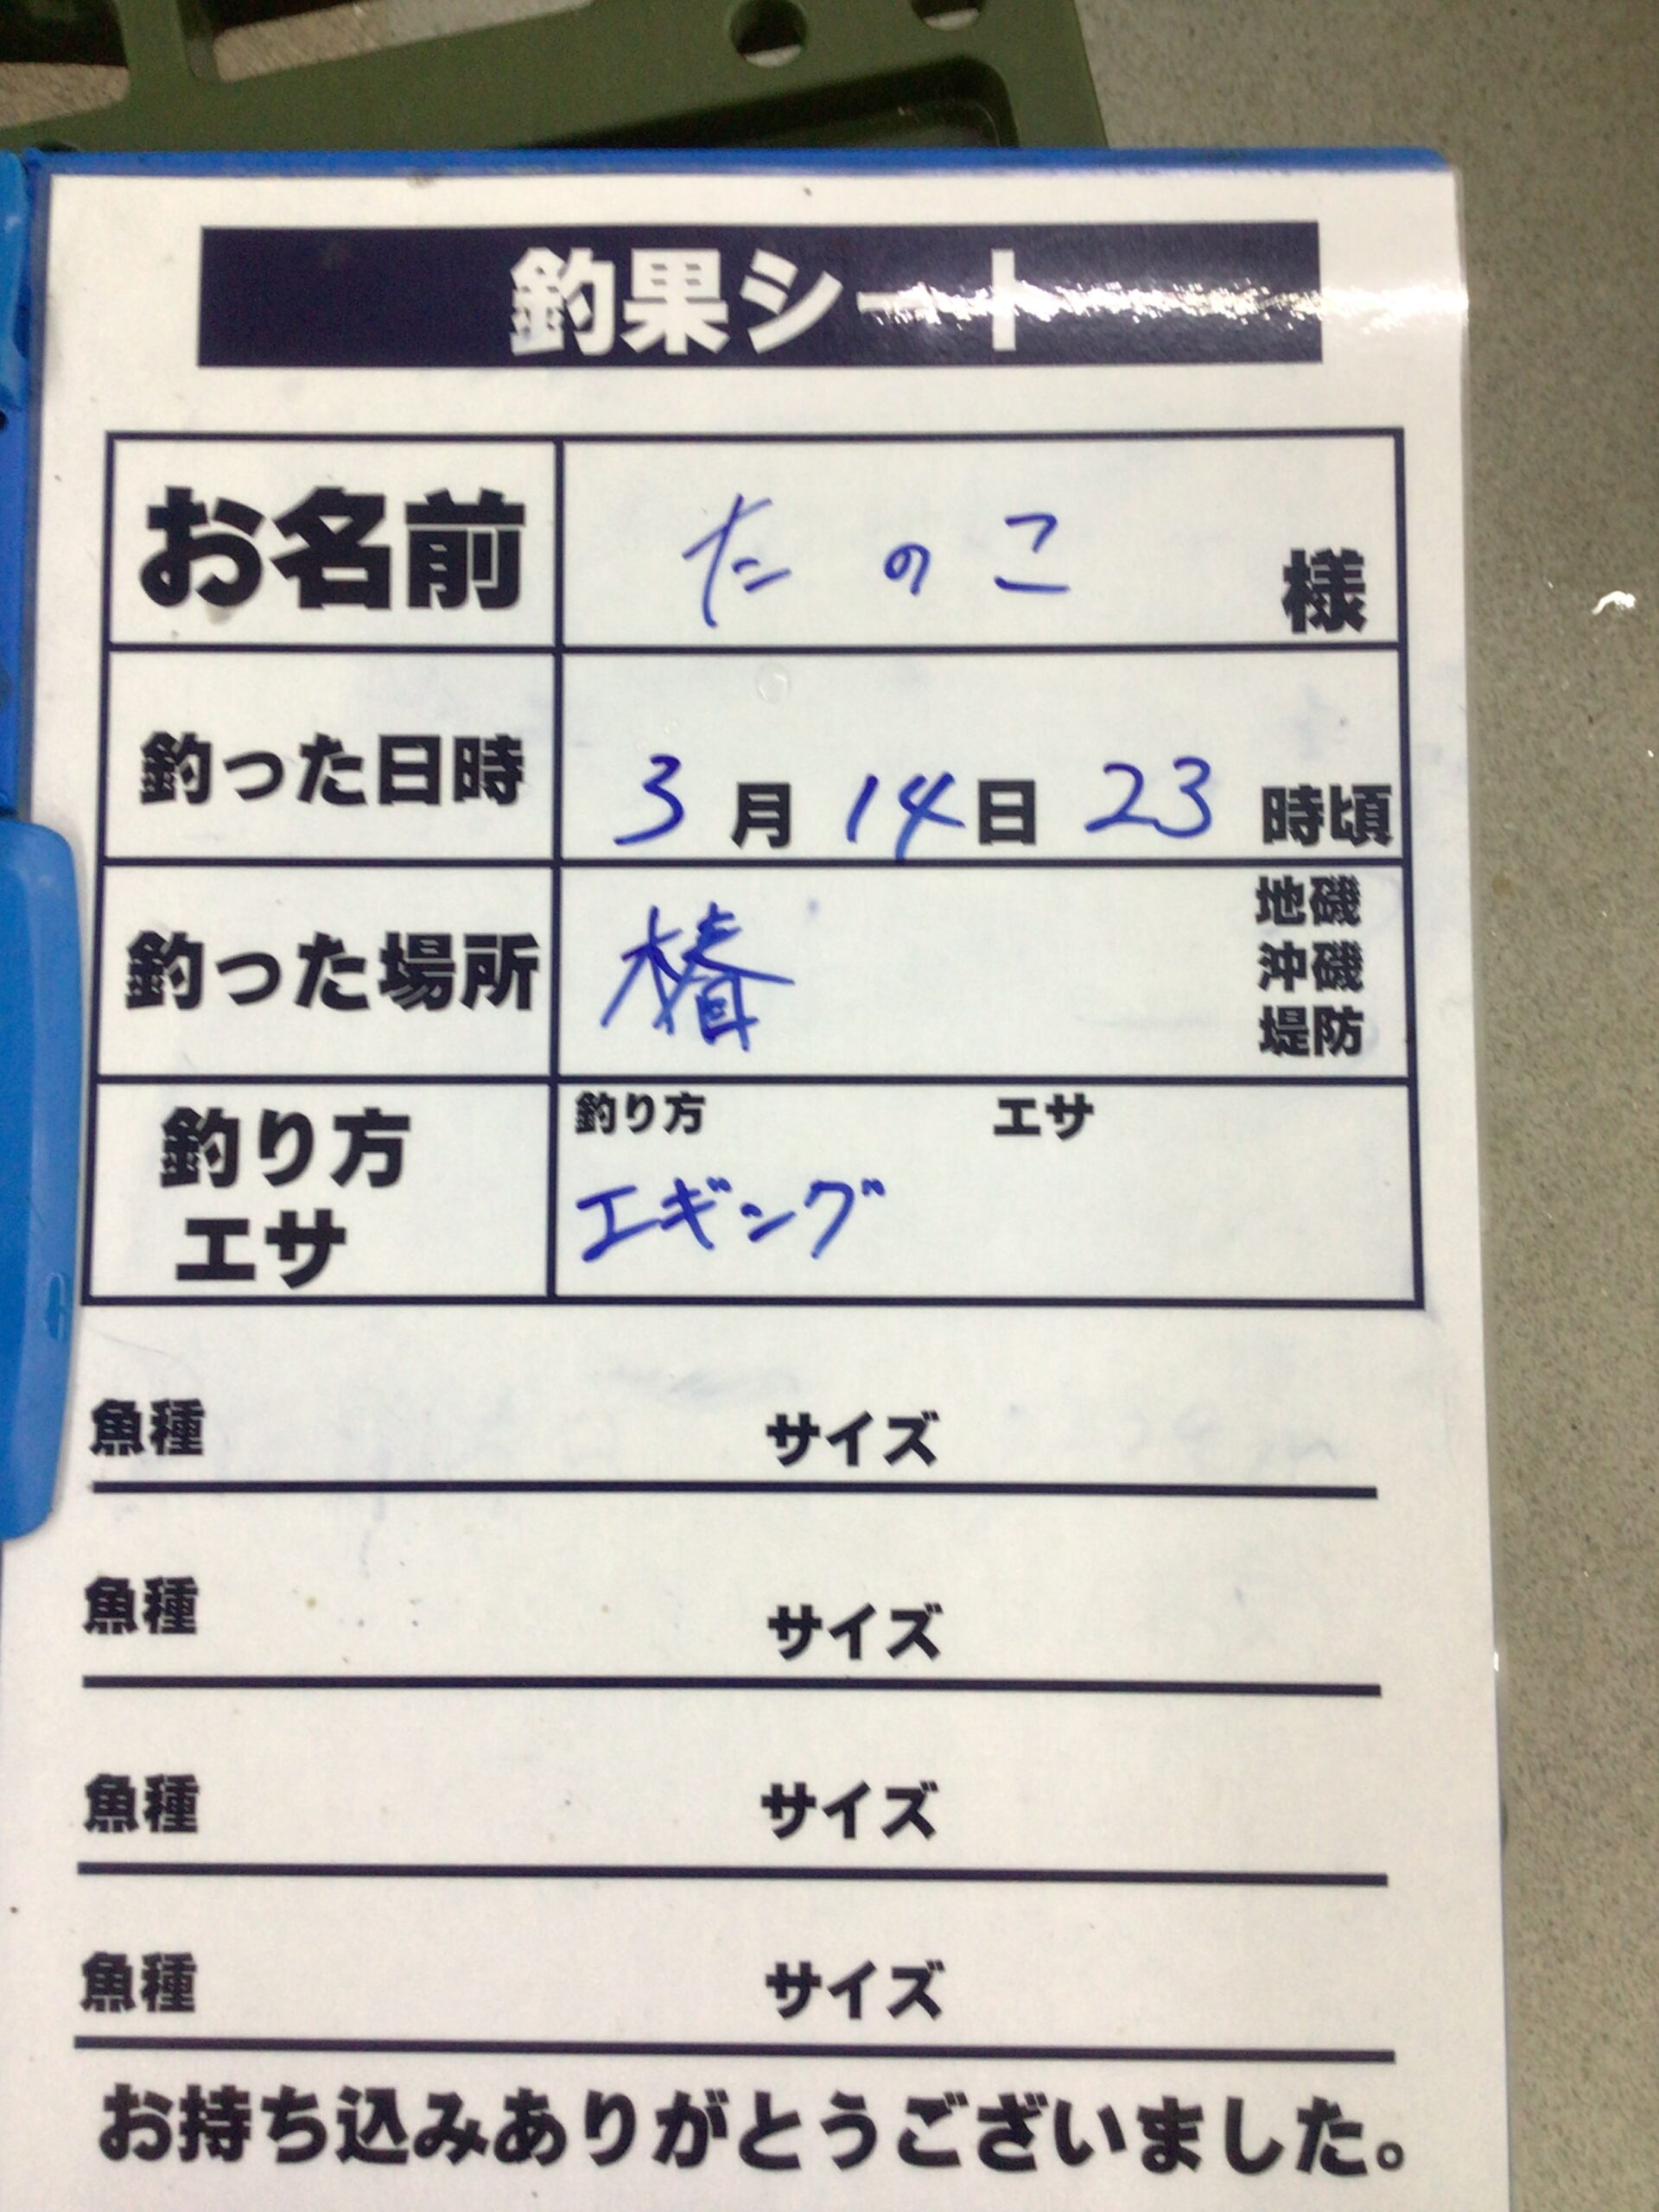 釣果シート
お名前 たのこ 様
釣った日時 3月14日23時頃
釣った場所 椿 地磯
沖磯
堤防
釣り方 エサ
釣り方
エサ
エギング
魚種 サイズ
魚種 サイズ
魚種 サイズ
魚種 サイズ
お持ち込みありがとうございました。